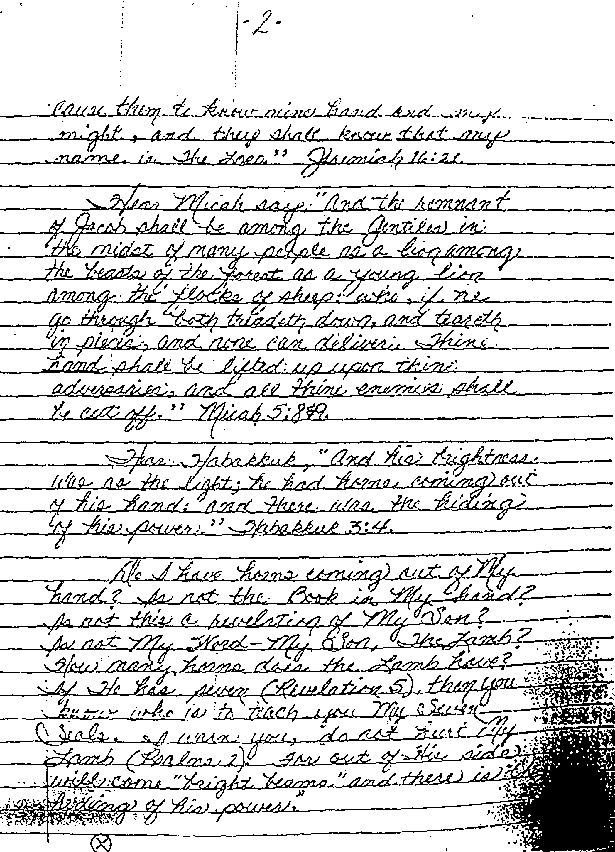 -2-
cause them to know mine hand and my
might, and they shall know that my
name is The Lord." Jeremiah 16:21.
Hear Micah say, "And the remnant
of Jacob shall be among the Gentiles in
the midst of many people as a lion among
the beasts of the forest as a young lion
among the flocks of sheep: who, if he
go through both treadeth down, and teareth
in pieces, and none can deliver. Thine
hand shall be lifted up upon thine
adversaries, and all thine enemies shall
be cut off." Micah 5:8&9.
Hear Habakkuk, "And his brightness
was as the light; he had horns coming out
of his hand: and there was the hiding
of his power." Habakkuk 3:4.
Do I have horns coming out of My
hand? Is not the Book in My hand?
Is not this a revelation of My Son?
Is not My Word-My Son, The Lamb?
How many horns does the Lamb have?
If He has seven (Revelation 5), then you
know who is to teach you My Seven
Seals. I warn you, do not hurt My
Lamb (Psalms 2). For out of His side
will come "bright beams" and there is the
hiding of his power."
(X)